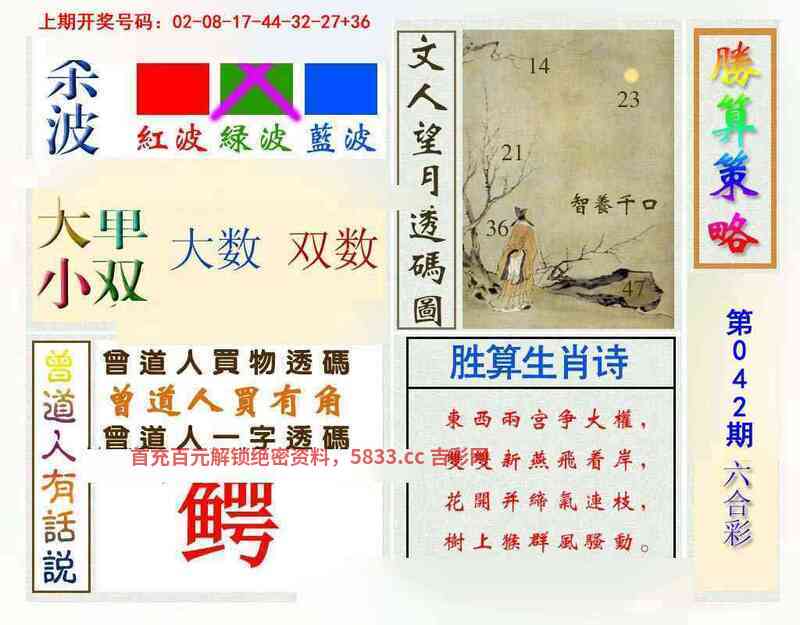 上期开奖号码：02-08-17-44-32-27+36
杀波
紅波 緑波 藍波
大小
甲双
大数 双数
曾道人有話説
曾道人買物透碼
曾道人買有角
曾道人一字透碼
鳄
文人望月透碼圖
14
23
21
智養千口
36
47
胜算生肖诗
東西兩宮争大權，
雙雙新燕飛着岸，
花開并締氣連枝，
樹上猴群風騷動。
首充百元解锁绝密资料，5833.cc 吉彩网
勝算策略
第042期
六合彩